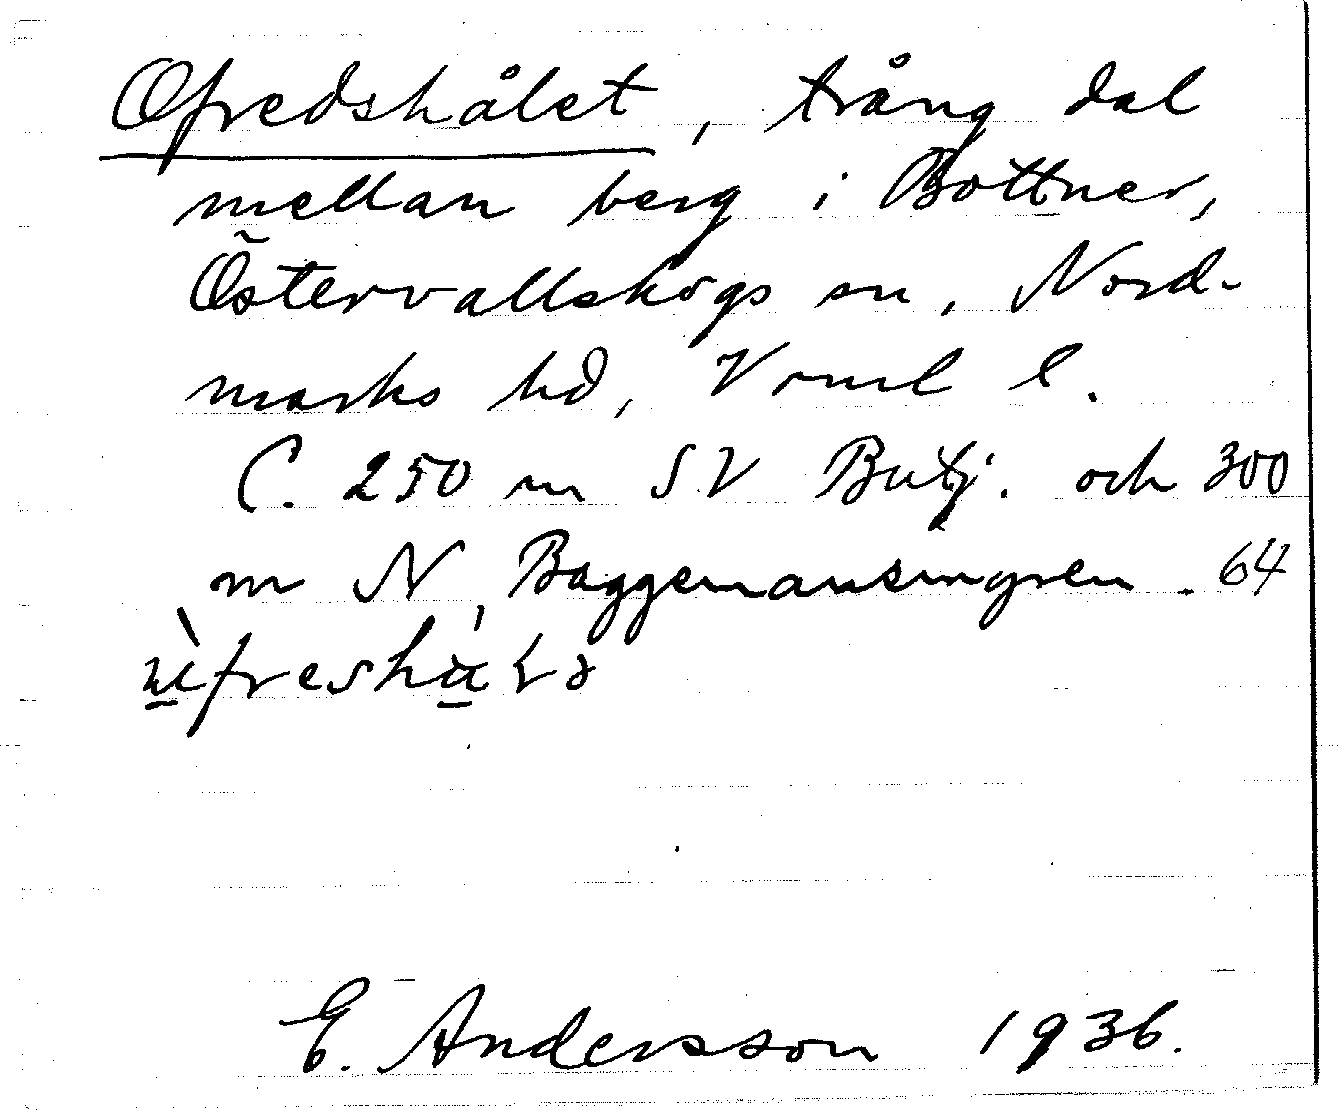 Ofredshålet, trång dal
mellan berg i Bottner,
Östervallskogs sn, Nord-
marks hd, Vrml l.
C. 250 m SV Butj. och 300
m N Baggemansmyren. 64
E. Andersson 1936.